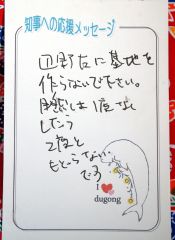 知事への応援メッセージ
辺野古に基地を
作らないで下さい。
自然は1度なくしたら
2度と
もどらない
だろ
I ❤
dugong